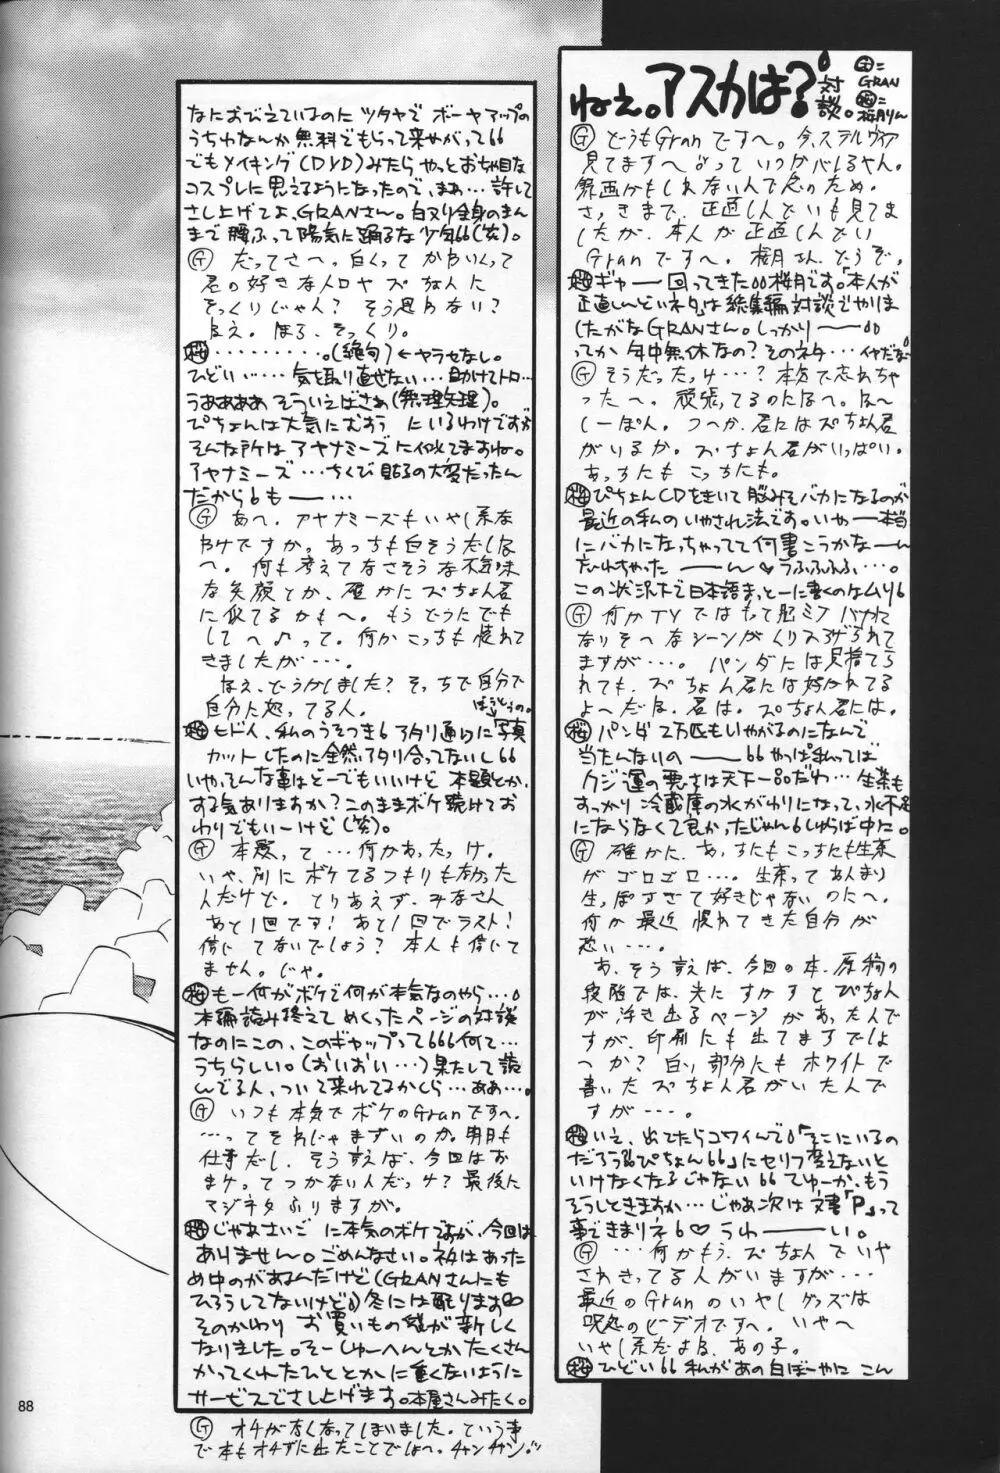 ねぇ。アスカは?
対談。
G=GRAN
桜=桜月りん
G どうもGranですへ。今、ステルヴィア
見てますへ よって いつかバレるやん。
さっきまで、正直しんどいも見てま
したが、本人が正直しんどい
Granですへ。桜月さん、どうぞ。
桜 ギャー― 回ってきた 桜月です。「本人が
正直しんどい」ネタは総集編対談でやりま
したがなGRANさん。しっかり――
ってか 年中無休なの?そのネタ…イヤだな
G そうだったっけ…?本気で忘れちゃ
ったへ。頑張ってるのになへ。な〜
しーぽん。つへか、君にはズちょん君
がいるか。ズちょん君がいっぱい。
あっちにも こっちにも。
桜 ぴちょんCDをきいて脳みそバカになるのが
最近の私のいやされ法です。いや―本当
にバカになっちゃってて何書こうかな――ん
忘れちゃった ――ん♡うふふふふ…。
この状況下で日本語まっとーに書くのはムリ
G 何かTVではもって脳ミソバカに
なりそへなシーンがくり広げられて
ますが…。パンダには見捨てら
れても、ズちょん君には好かれてる
よへだな、君は。ズちょん君には。
桜 パンダ 2万匹もいやがるのになんで
当たんないの―― やっぱ私ってば
クジ運の悪さは天下一品だわ… 生茶も
すっかり 冷蔵庫の水がわりになって、水不足
にならなくて良かったじゃん しゅらば中に。
G 確かに、あっちにもこっちにも生茶
がゴロゴロ…。生茶って あんまり
生っぽすぎて好きじゃないのにへ。
何か最近 慣れてきた自分が
恐い…。
あ、そう言えば、今回の本、原稿の
段階では、光にすかすとぴちょん
が浮き出るページがあったんで
すが、印刷にも出てますでしょ
へか?白い部分にもホワイトで
書いたズちょん君がいたんで
すが…。
桜 いえ、出てたらコワイんで「そこにいるの
だろう ぴちょん」にセリフ変えないと
いけなくなるじゃない てゅーか、もう
そうしときますか… じゃあ次は文書「P」って
事できまりネ♡ うわ―――い。
G …何かもう、ズちょんでいや
されきってる人がいますが…
最近のGranのいやしグッズは
呪怨のビデオですへ。いやへ
いやし系だよね、あの子。
桜 ひどい 私があの白ぼーやに こん
なにおびえているのに ツタヤで ボーヤアップの
うちわなんか無料でもらって来やがって
でもメイキング(DVD)みたら、やっとおちゃ目な
コスプレに思えるようになったので、まぁ…許して
さし上げてよ、GRANさん。白ヌリ全身のまん
まで 腰ふって陽気に踊るな少年(笑)。
G だってさへ。白くって かわいくって
君の好きな人ロヤ ズちょんに
そっくりじゃん?そう思わない?
ねえ。ほら、そっくり。
桜 ………。(絶句)←ヤラセなし。
ひどい…… 気を取り直せない…助けてトロ…
うああああ そういえばさぁ(無理矢理)。
ぴちょんは大気におおう にいるわけですが
そんな所は アヤナミーズに似てますね。
アヤナミーズ …ちくび貼るの大変だったん
だから も――…
G あへ、アヤナミーズもいやし系な
わけですか。あっちも白そうだしな
へ。何も考えてなさそうな不気味
な笑顔とか、確かにズちょん君
に似てるかもへ。もうどうにでも
してへ♪って。何かこっちも慣れて
きましたが…。
なえ、どうかしました?そっちで自分で
自分に怒ってる人。
桜 ヒドイ、私のうそつき アタリ通りに写真
カットしたのに全然アタリ合ってないし
いや、そんな事はどーでもいいけど 本題とか、
する気ありますか?このままボケ続けてお
わりでもいーけど(笑)。
G 本題って…何かあったっけ。
いや、別にボケてるつもりも無かった
んだけど。とりあえず、みなさん
あと1回です!あと1回でラスト!
信じてないでしょう?本人も信じて
ません。じゃ。
桜 もー何がボケで何が本気なのやら…
本編読み終えて めくったページの対談
なのにこの、このギャップって何て…
うちらしい。(おいおい…)果たして読
んでる人、ついて来れてるかしら…ああ…。
G いつも本気でボケのGranですへ。
…ってそれじゃまずいのか。明日も
仕事だし、そう言えば、今回はお
まけってつかないんだっけ?最後に
マジネタふりますが。
桜 じゃあさいご に本気のボケですが、今回は
ありません。ごめんなさい。ネタはあった
め中のがあるんだけど(GRANさんにも
ひろうしてないけど)冬には配ります
そのかわり お買いもの袋が新しく
なりました。そーしゅーへんとかたくさん
かってくれたひととかに重くないように
サービスでさし上げます。本屋さんみたく。
G オチがなくなってしまいました。という事
で本もオチずに出たことでしょへ。チャンチャン。
88